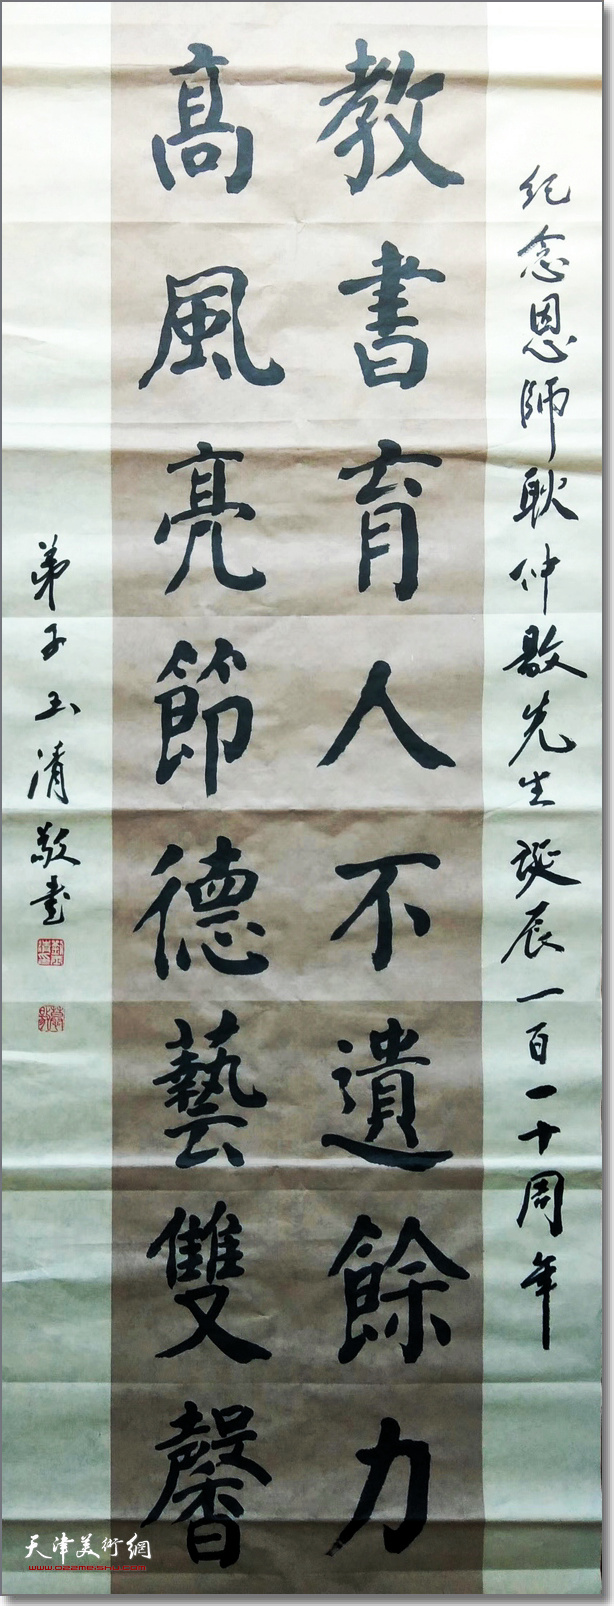 纪念恩师耿仲敭先生诞辰一百一十周年
教書育人不遺餘力
高風亮節德藝雙馨
弟子玉清敬书
天津美術網